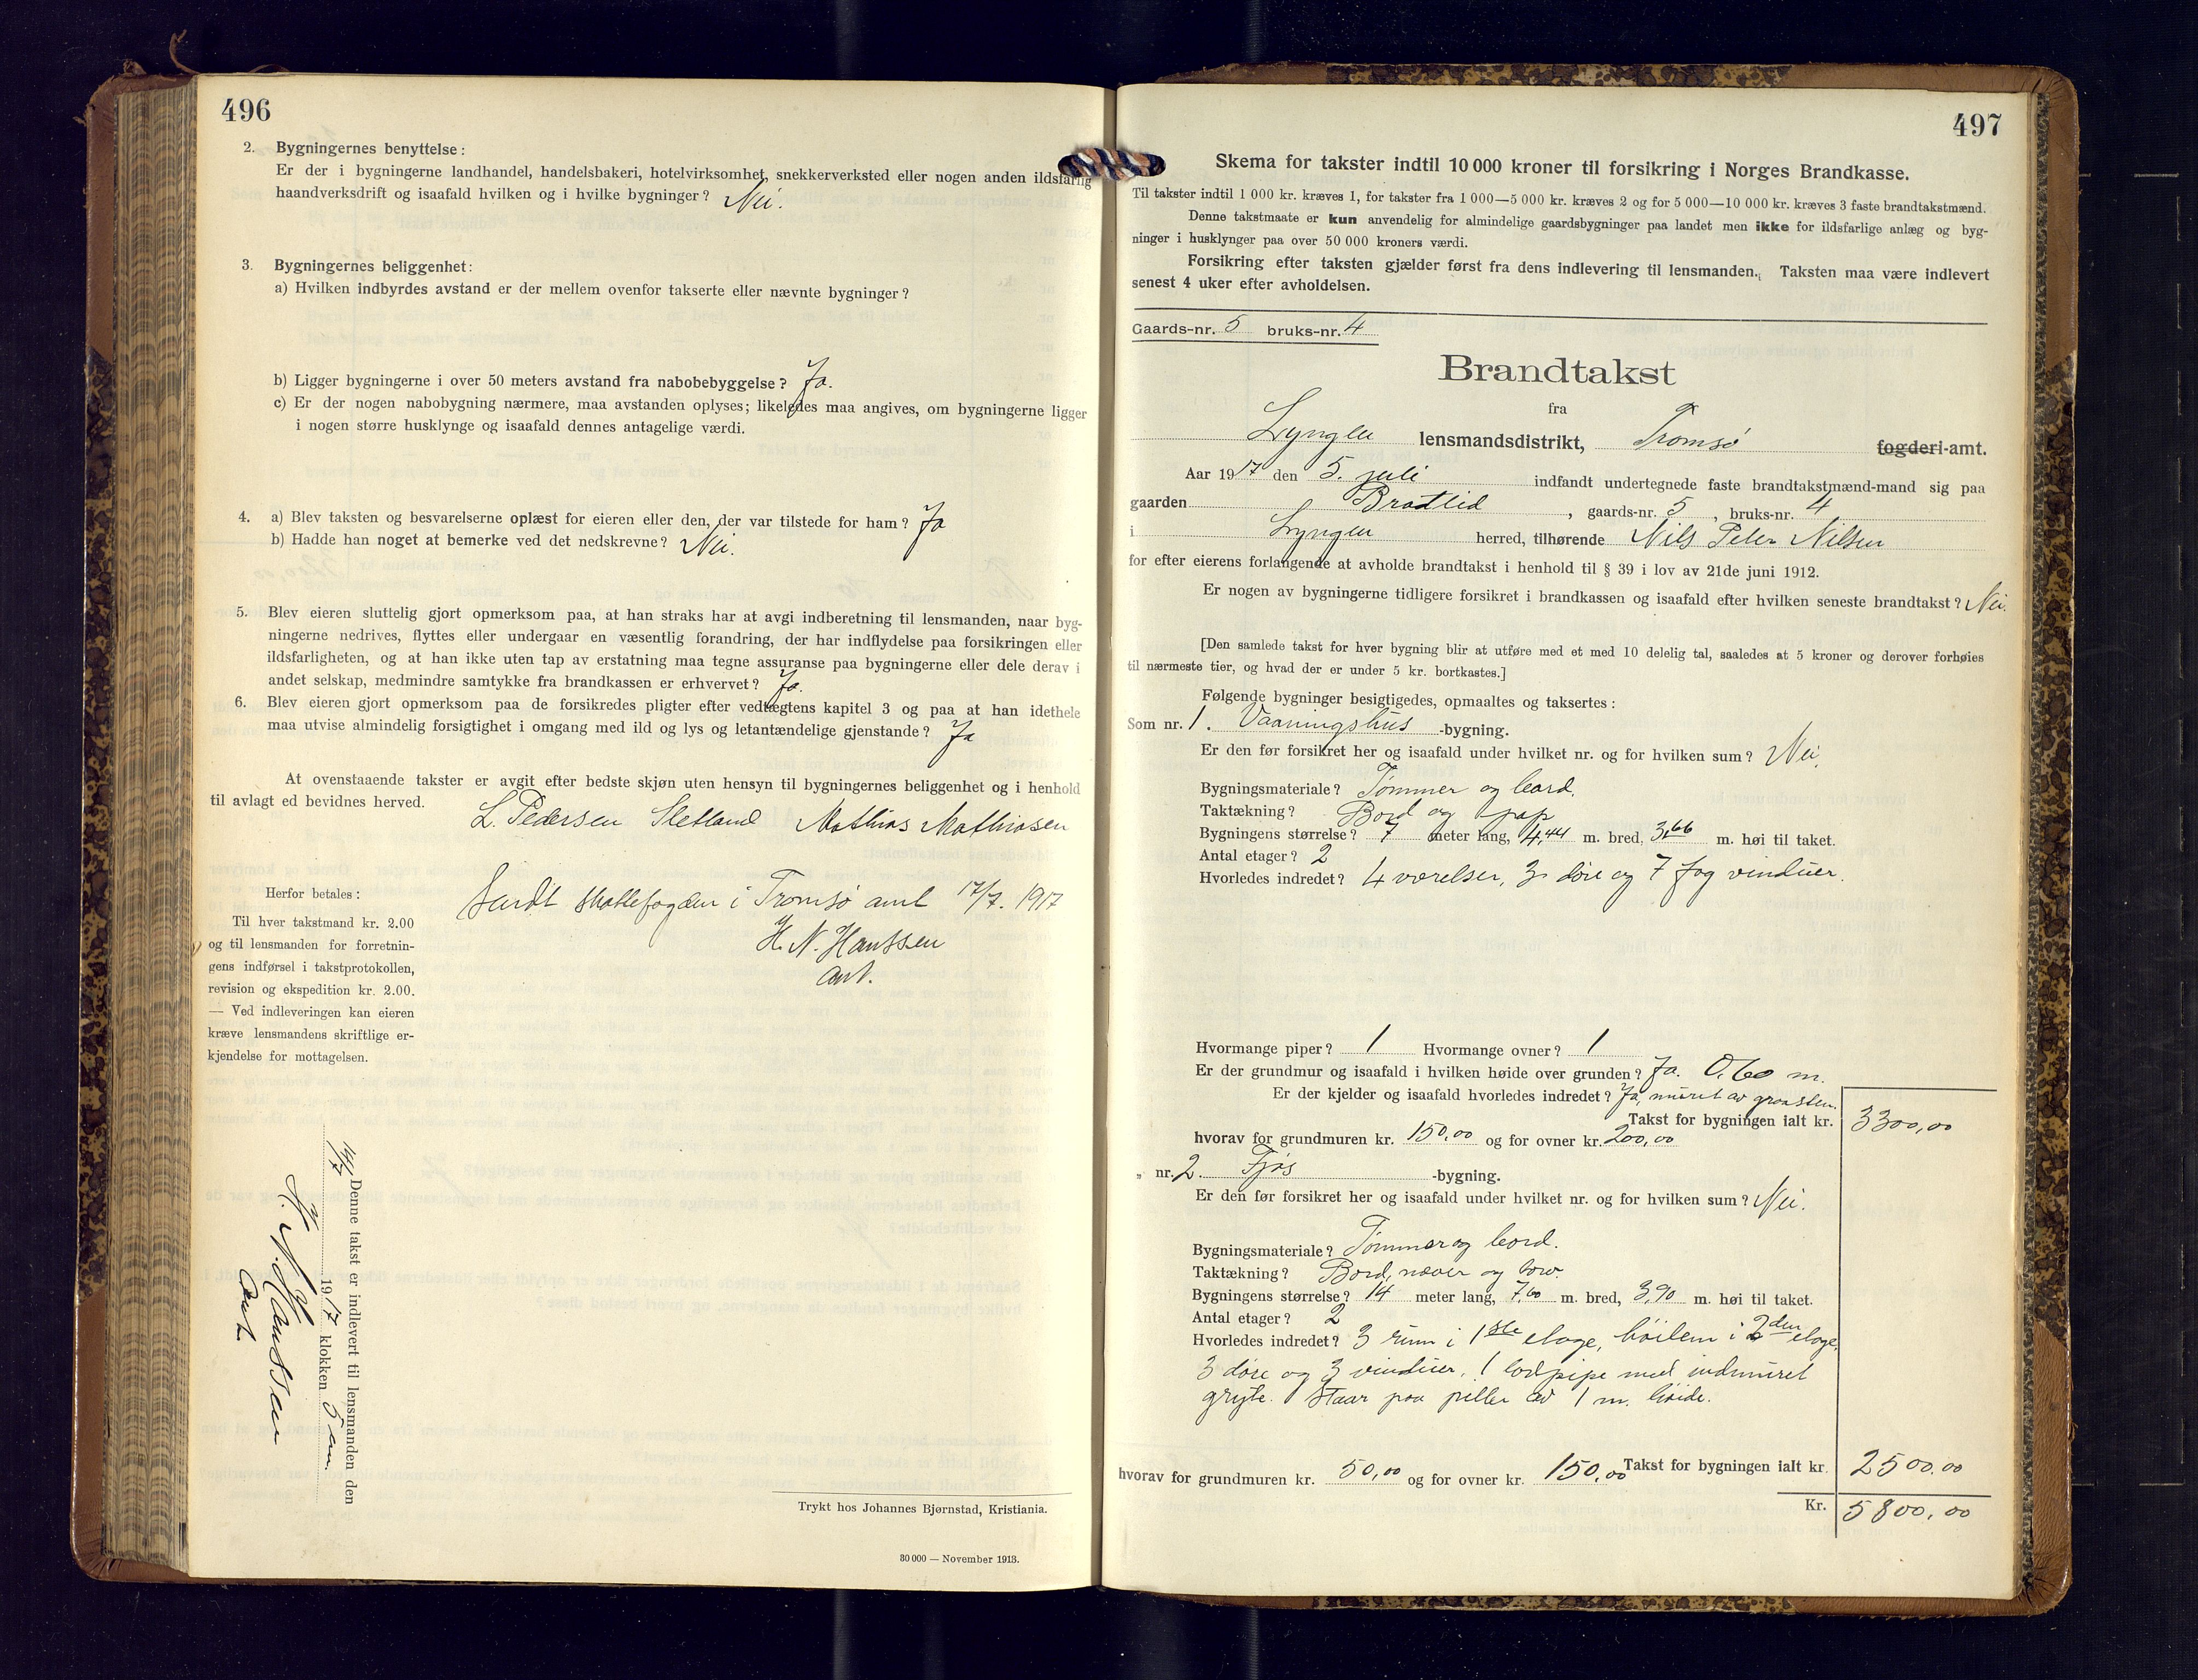 496
2. Bygningernes benyttelse:
Er der i bygningerne landhandel, handelsbakeri, hotelvirksomhet, snekkerverksted eller nogen anden ildsfarlig
haandverksdrift og isaafald hvilken og i hvilke bygninger? Nei.
3. Bygningernes beliggenhet:
a) Hvilken indbyrdes avstand er der mellem ovenfor takserte eller nævnte bygninger?
b) Ligger bygningerne i over 50 meters avstand fra nabobebyggelse? Ja.
c) Er der nogen nabobygning nærmere, maa avstanden oplyses; likeledes maa angives, om bygningerne ligger
i nogen større husklynge og isaafald dennes antagelige værdi.
4. a) Blev taksten og besvarelserne oplæst for eieren eller den, der var tilstede for ham? Ja
b) Hadde han noget at bemerke ved det nedskrevne? Nei.
5. Blev eieren sluttelig gjort opmerksom paa, at han straks har at avgi indberetning til lensmanden, naar byg-
ningerne nedrives, flyttes eller undergaar en væsentlig forandring, der har indflydelse paa forsikringen eller
ildsfarligheten, og at han ikke uten tap av erstatning maa tegne assuranse paa bygningerne eller dele derav i
andet selskap, medmindre samtykke fra brandkassen er erhvervet? Ja.
6. Blev eieren gjort opmerksom paa de forsikredes pligter efter vedtægtens kapitel 3 og paa at han idethele
maa utvise almindelig forsigtighet i omgang med ild og lys og letantændelige gjenstande? Ja
At ovenstaaende takster er avgit efter bedste skjøn uten hensyn til bygningernes beliggenhet og i henhold
til avlagt ed bevidnes herved.
L. Pedersen Sletland Mathias Mathiasen
Sendt skattefogden i Tromsø amt 17/7. 1917
H. N. Hanssen
Herfor betales:
Til hver takstmand kr. 2.00
og til lensmanden for forretnin-
gens indførsel i takstprotokollen,
revision og ekspedition kr. 2.00.
— Ved indleveringen kan eieren
kræve lensmandens skriftlige er-
kjendelse for mottagelsen.
Denne takst er indlevert til lensmanden den
14/7 1917 klokken 5 em.
H. N. Hanssen
Trykt hos Johannes Bjørnstad, Kristiania.
30 000 — November 1913.
497
Skema for takster indtil 10 000 kroner til forsikring i Norges Brandkasse.
Til takster indtil 1 000 kr. kræves 1, for takster fra 1 000—5 000 kr. kræves 2 og for 5 000—10 000 kr. kræves 3 faste brandtakstmænd.
Denne takstmaate er kun anvendelig for almindelige gaardsbygninger paa landet men ikke for ildsfarlige anlæg og byg-
ninger i husklynger paa over 50 000 kroners værdi.
Forsikring efter taksten gjælder først fra dens indlevering til lensmanden. Taksten maa være indlevert
senest 4 uker efter avholdelsen.
Gaards-nr. 5 bruks-nr. 4
Brandtakst
fra
Lyngen lensmandsdistrikt, Tromsø fogderi-amt.
Aar 1917 den 5. juli indfandt undertegnede faste brandtakstmænd-mand sig paa
gaarden Bratlid, gaards-nr. 5, bruks-nr. 4
i Lyngen herred, tilhørende Nils Peter Nilsen
for efter eierens forlangende at avholde brandtakst i henhold til § 39 i lov av 21de juni 1912.
Er nogen av bygningerne tidligere forsikret i brandkassen og isaafald efter hvilken seneste brandtakst? Nei.
[Den samlede takst for hver bygning blir at utføre med et med 10 delelig tal, saaledes at 5 kroner og derover forhøies
til nærmeste tier, og hvad der er under 5 kr. bortkastes.]
Følgende bygninger besigtigedes, opmaaltes og taksertes:
Som nr. 1. Vaaningshus -bygning.
Er den før forsikret her og isaafald under hvilket nr. og for hvilken sum? Nei.
Bygningsmateriale? Tømmer og bord.
Taktækning? Bord og pap
Bygningens størrelse? 7 meter lang, 4,44 m. bred, 3,66 m. høi til taket.
Antal etager? 2
Hvorledes indredet? 4 værelser, 3 døre og 7 fag vinduer.
Hvormange piper? 1 Hvormange ovner? 1
Er der grundmur og isaafald i hvilken høide over grunden? Ja. 0,60 m.
Er der kjelder og isaafald hvorledes indredet? Ja, muret av graasten.
Takst for bygningen ialt kr. 3300,00
hvorav for grundmuren kr. 150,00 og for ovner kr. 200,00
„ nr. 2. Fjøs -bygning.
Er den før forsikret her og isaafald under hvilket nr. og for hvilken sum? Nei.
Bygningsmateriale? Tømmer og bord.
Taktækning? Bord, næver og torv.
Bygningens størrelse? 14 meter lang, 7,60 m. bred, 3,90 m. høi til taket.
Antal etager? 2
Hvorledes indredet? 3 rum i 1ste etage, høilem i 2den etage,
3 døre og 3 vinduer. 1 pipe med indmuret
gryte. Staar paa peller av 1 m. høide.
Takst for bygningen ialt kr. 2500.00
hvorav for grundmuren kr. 50,00 og for ovner kr. 150,00
Kr. 5800,00